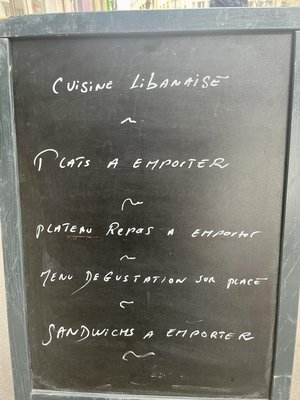 CUISINE LIBANAISE
~
PLATS A EMPORTER
~
PLATEAU REPAS A EMPORTER
~
MENU DEGUSTATION SUR PLACE
~
SANDWICHS A EMPORTER
~